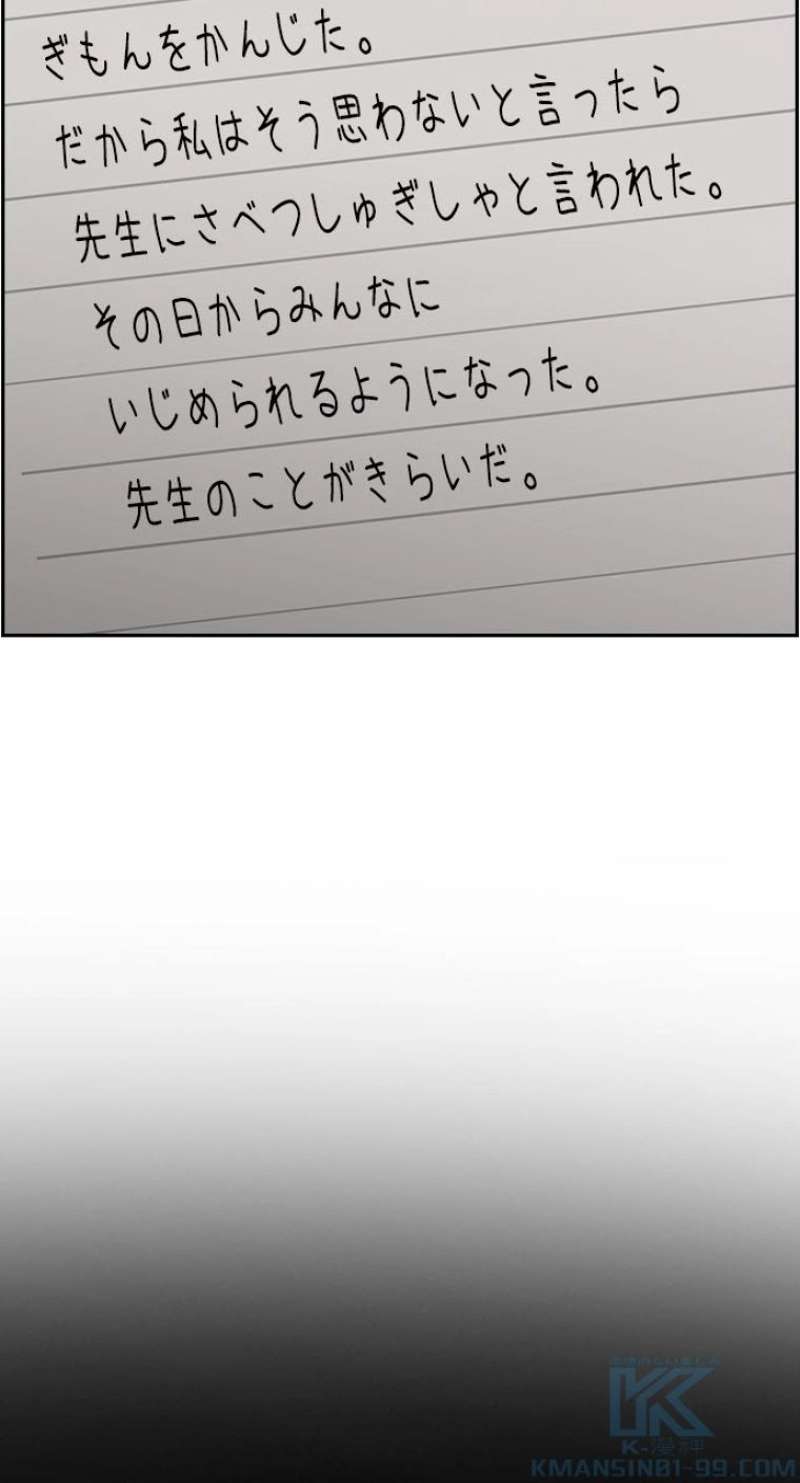 ぎもんをかんじた。
だから私はそう思わないと言ったら
先生にさべつしゅぎしゃと言われた。
その日からみんなに
いじめられるようになった。
先生のことがきらいだ。
K
K-漫神
KMANSIN01-99.COM